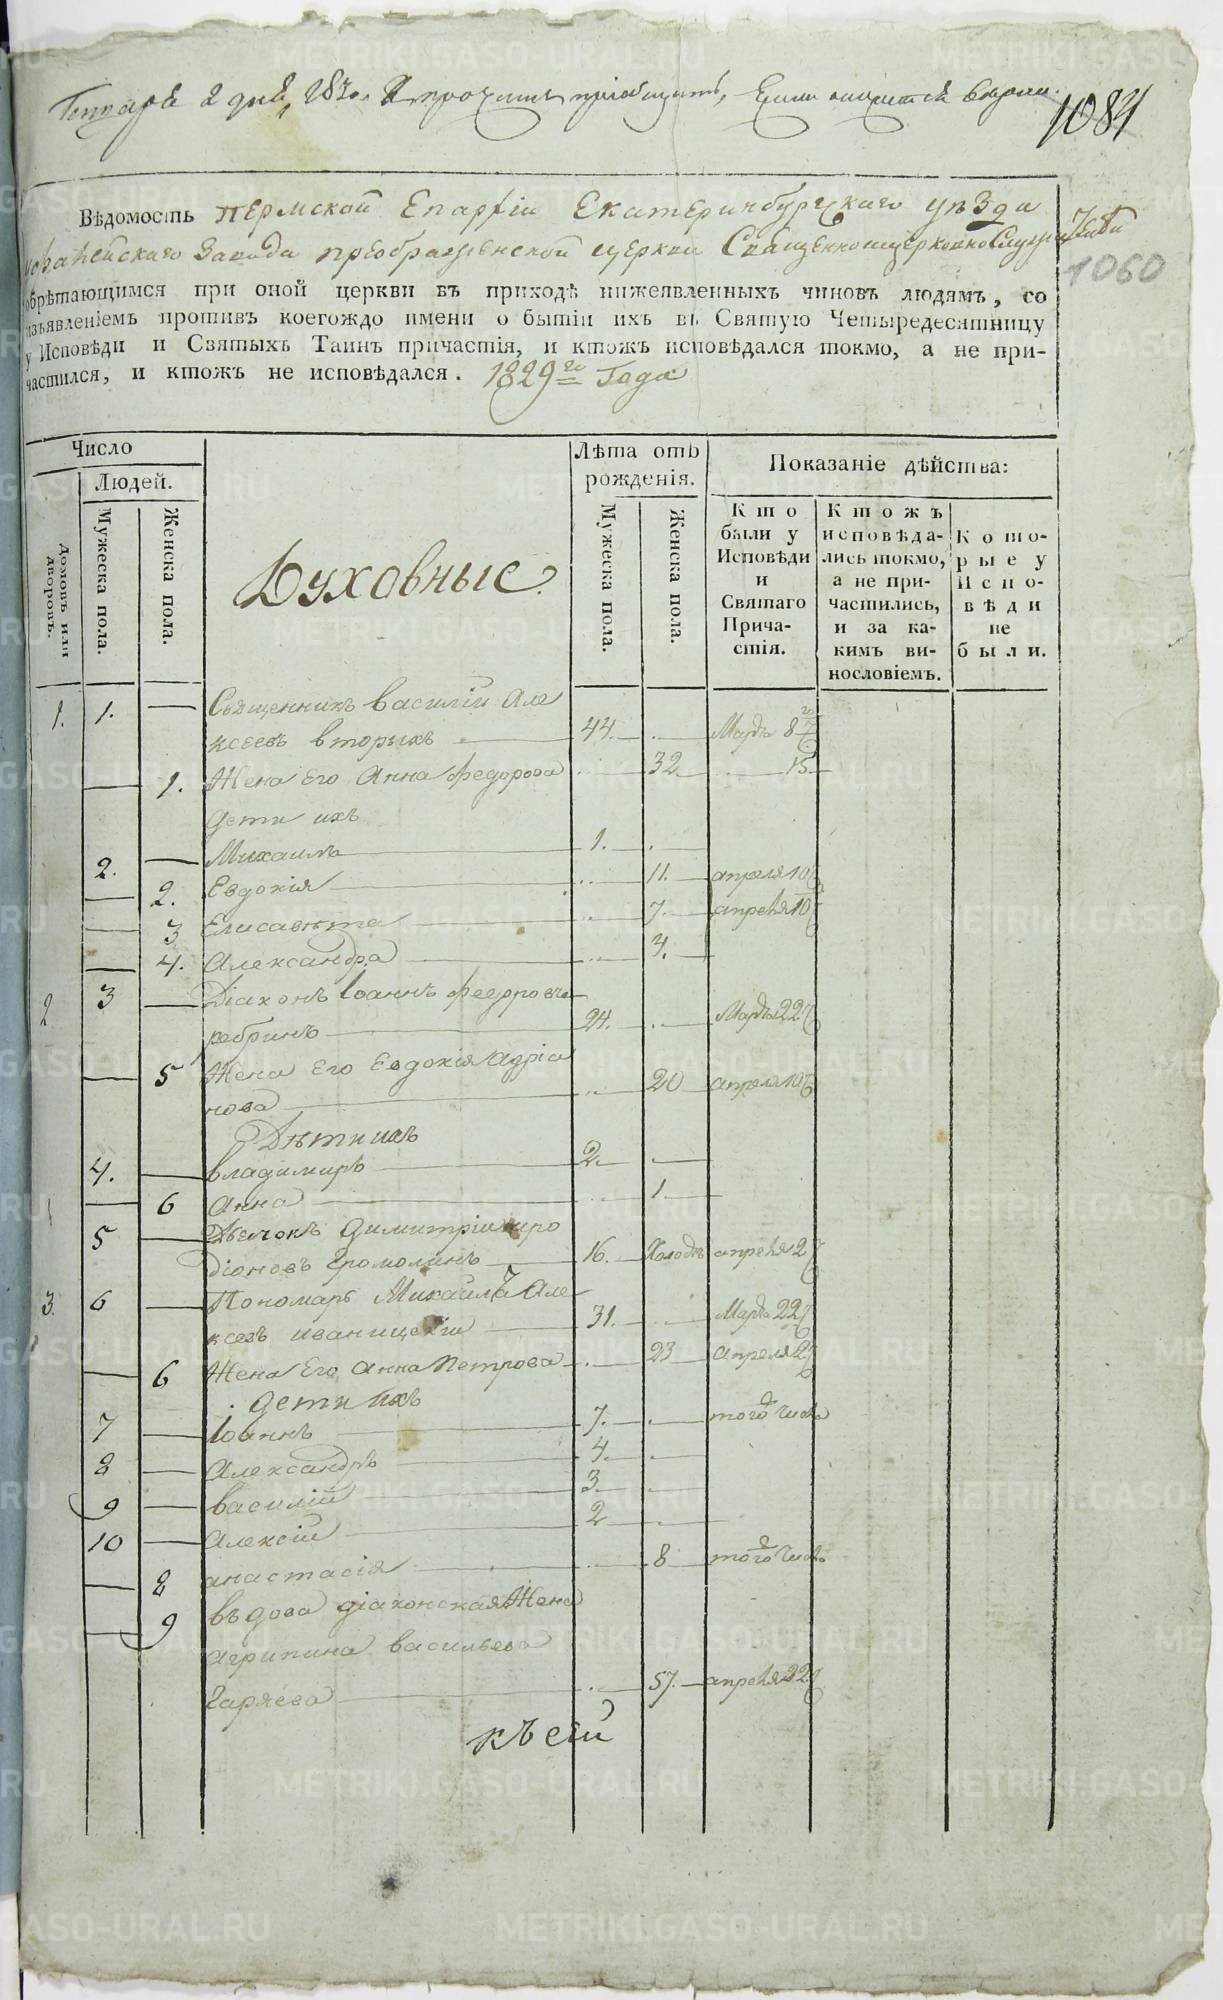 1084
Вѣдомость Пермской Епархіи Екатеринбургскаго уѣзда
Завода преображенской церкви Священноцерковнослужительми
1060
обрѣтающимся при оной церкви въ приходѣ нижеявленныхъ чиновъ людямъ, со
изъявленіемъ противъ коегождо имени о бытіи ихъ въ Святую Четыредесятницу
у Исповѣди и Святыхъ Таинъ причастія, и ктожъ исповѣдался токмо, а не при-
частился, и ктожъ не исповѣдался. 1829го Года
Число
Людей.
Домовъ или дворовъ.
Мужеска пола.
Женска пола.
Духовные
Лѣта отъ
рожденія.
Мужеска пола.
Женска пола.
Показаніе дѣйства:
Кто
были у
Исповѣди
и
Святаго
Прича-
стія.
Ктожъ
исповѣда-
лись токмо,
а не при-
частились,
и за ка-
кимъ ви-
нословіемъ.
Кото-
рые у
Испо-
вѣди
не
были.
1. 1. Священникъ василій Але
ксеевъ вторыхъ 44. Марта 8
1. Жена Его Анна федорова 32 15
дети ихъ
2. Михаилъ 1.
2. Евдокія 11. апреля 10
3 Елисавѣта 7. апреля 10
4. Александра 3.
2 3 Діаконъ Іоаннъ федоровъ
24. Марта 22
5 Жена Его Евдокія Адріа
нова 20 апреля 10
Дѣти ихъ
4. владимиръ 2.
6 Анна 1
5 Дьячокъ Димитрій иро
діоновъ 16. Холостъ апреля 2
3. 6 Пономарь Михаилъ Але
ксеевъ иваницкій 31. Марта 22
6 Жена Его Анна Петрова 23 апреля 2
дети ихъ
7 Іоаннъ 7. того числа
8 Александръ 4.
9 василій 3.
10 Алексій 2
8 анастасія 8 того числа
9 вдова діаконская Жена
агрипина васильева
Гаряева 57. апреля 22
къ сей